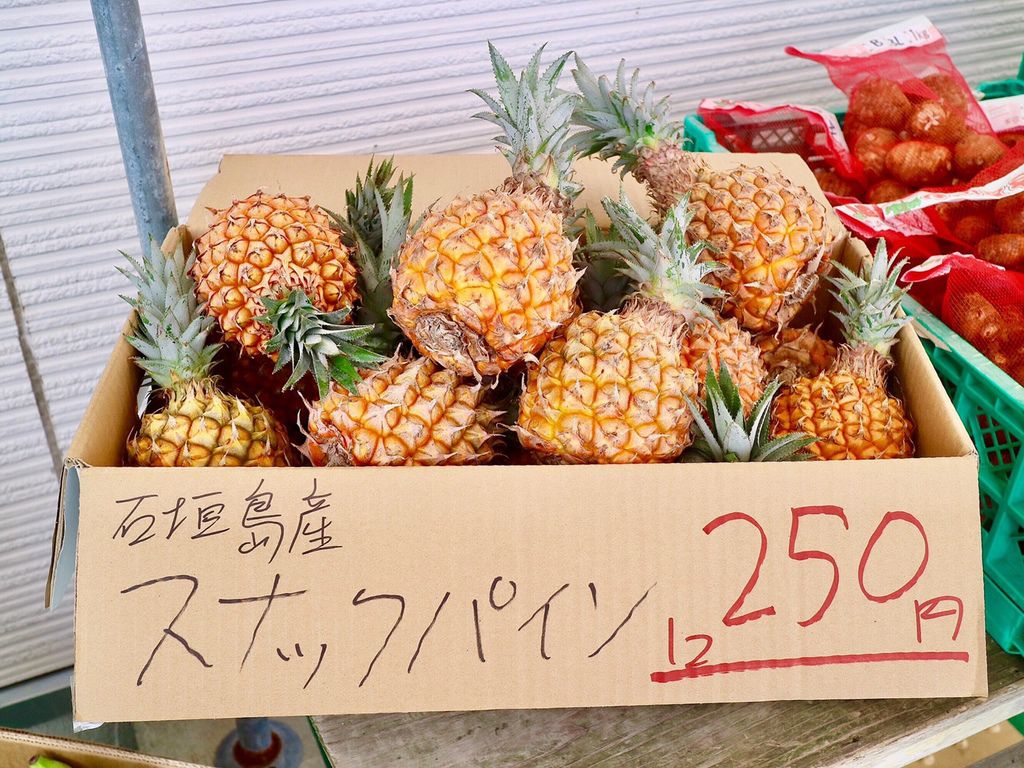 石垣島産
スナックパイン
1コ 250円